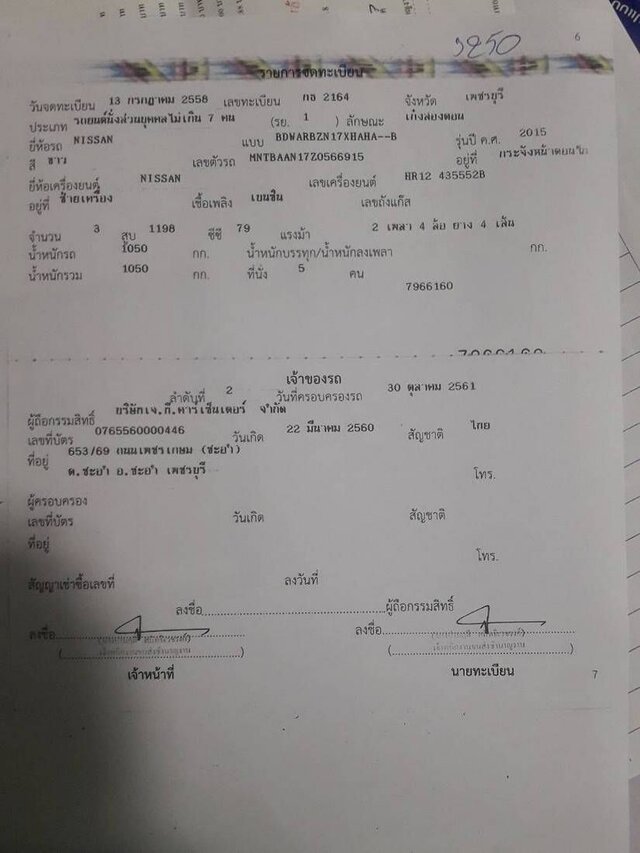 6
รายการจดทะเบียน
วันจดทะเบียน 13 กรกฎาคม 2558 เลขทะเบียน กธ 2164 จังหวัด เพชรบุรี
ประเภท รถยนต์นั่งส่วนบุคคลไม่เกิน 7 คน (รย. 1 ) ลักษณะ เก๋งสองตอน
ยี่ห้อรถ NISSAN แบบ BDWARBZN17XHAHA--B รุ่นปี ค.ศ. 2015
สี ขาว เลขตัวรถ MNTBAAN17Z0566915 อยู่ที่ กระจังหน้าตอนใน
ยี่ห้อเครื่องยนต์ NISSAN เลขเครื่องยนต์ HR12 435552B
อยู่ที่ ซ้ายเครื่อง เชื้อเพลิง เบนซิน เลขถังแก๊ส
จำนวน 3 สูบ 1198 ซีซี 79 แรงม้า 2 เพลา 4 ล้อ ยาง 4 เส้น
น้ำหนักรถ 1050 กก. น้ำหนักบรรทุก/น้ำหนักลงเพลา กก.
น้ำหนักรวม 1050 กก. ที่นั่ง 5 คน
7966160
เจ้าของรถ
ลำดับที่ 2 วันที่ครอบครองรถ 30 ตุลาคม 2561
ผู้ถือกรรมสิทธิ์ บริษัทเจ.ที.คาร์เซ็นเตอร์ จำกัด
เลขที่บัตร 0765560000446 วันเกิด 22 มีนาคม 2560 สัญชาติ ไทย
ที่อยู่ 653/69 ถนนเพชรเกษม (ชะอำ)
ต.ชะอำ อ.ชะอำ เพชรบุรี โทร.
ผู้ครอบครอง
เลขที่บัตร วันเกิด สัญชาติ
ที่อยู่
โทร.
สัญญาเช่าซื้อเลขที่ ลงวันที่
ลงชื่อ ผู้ถือกรรมสิทธิ์
ลงชื่อ ลงชื่อ
( เจ้าพนักงานขนส่งชำนาญงาน ) ( เจ้าพนักงานขนส่งชำนาญงาน )
เจ้าหน้าที่ นายทะเบียน
7